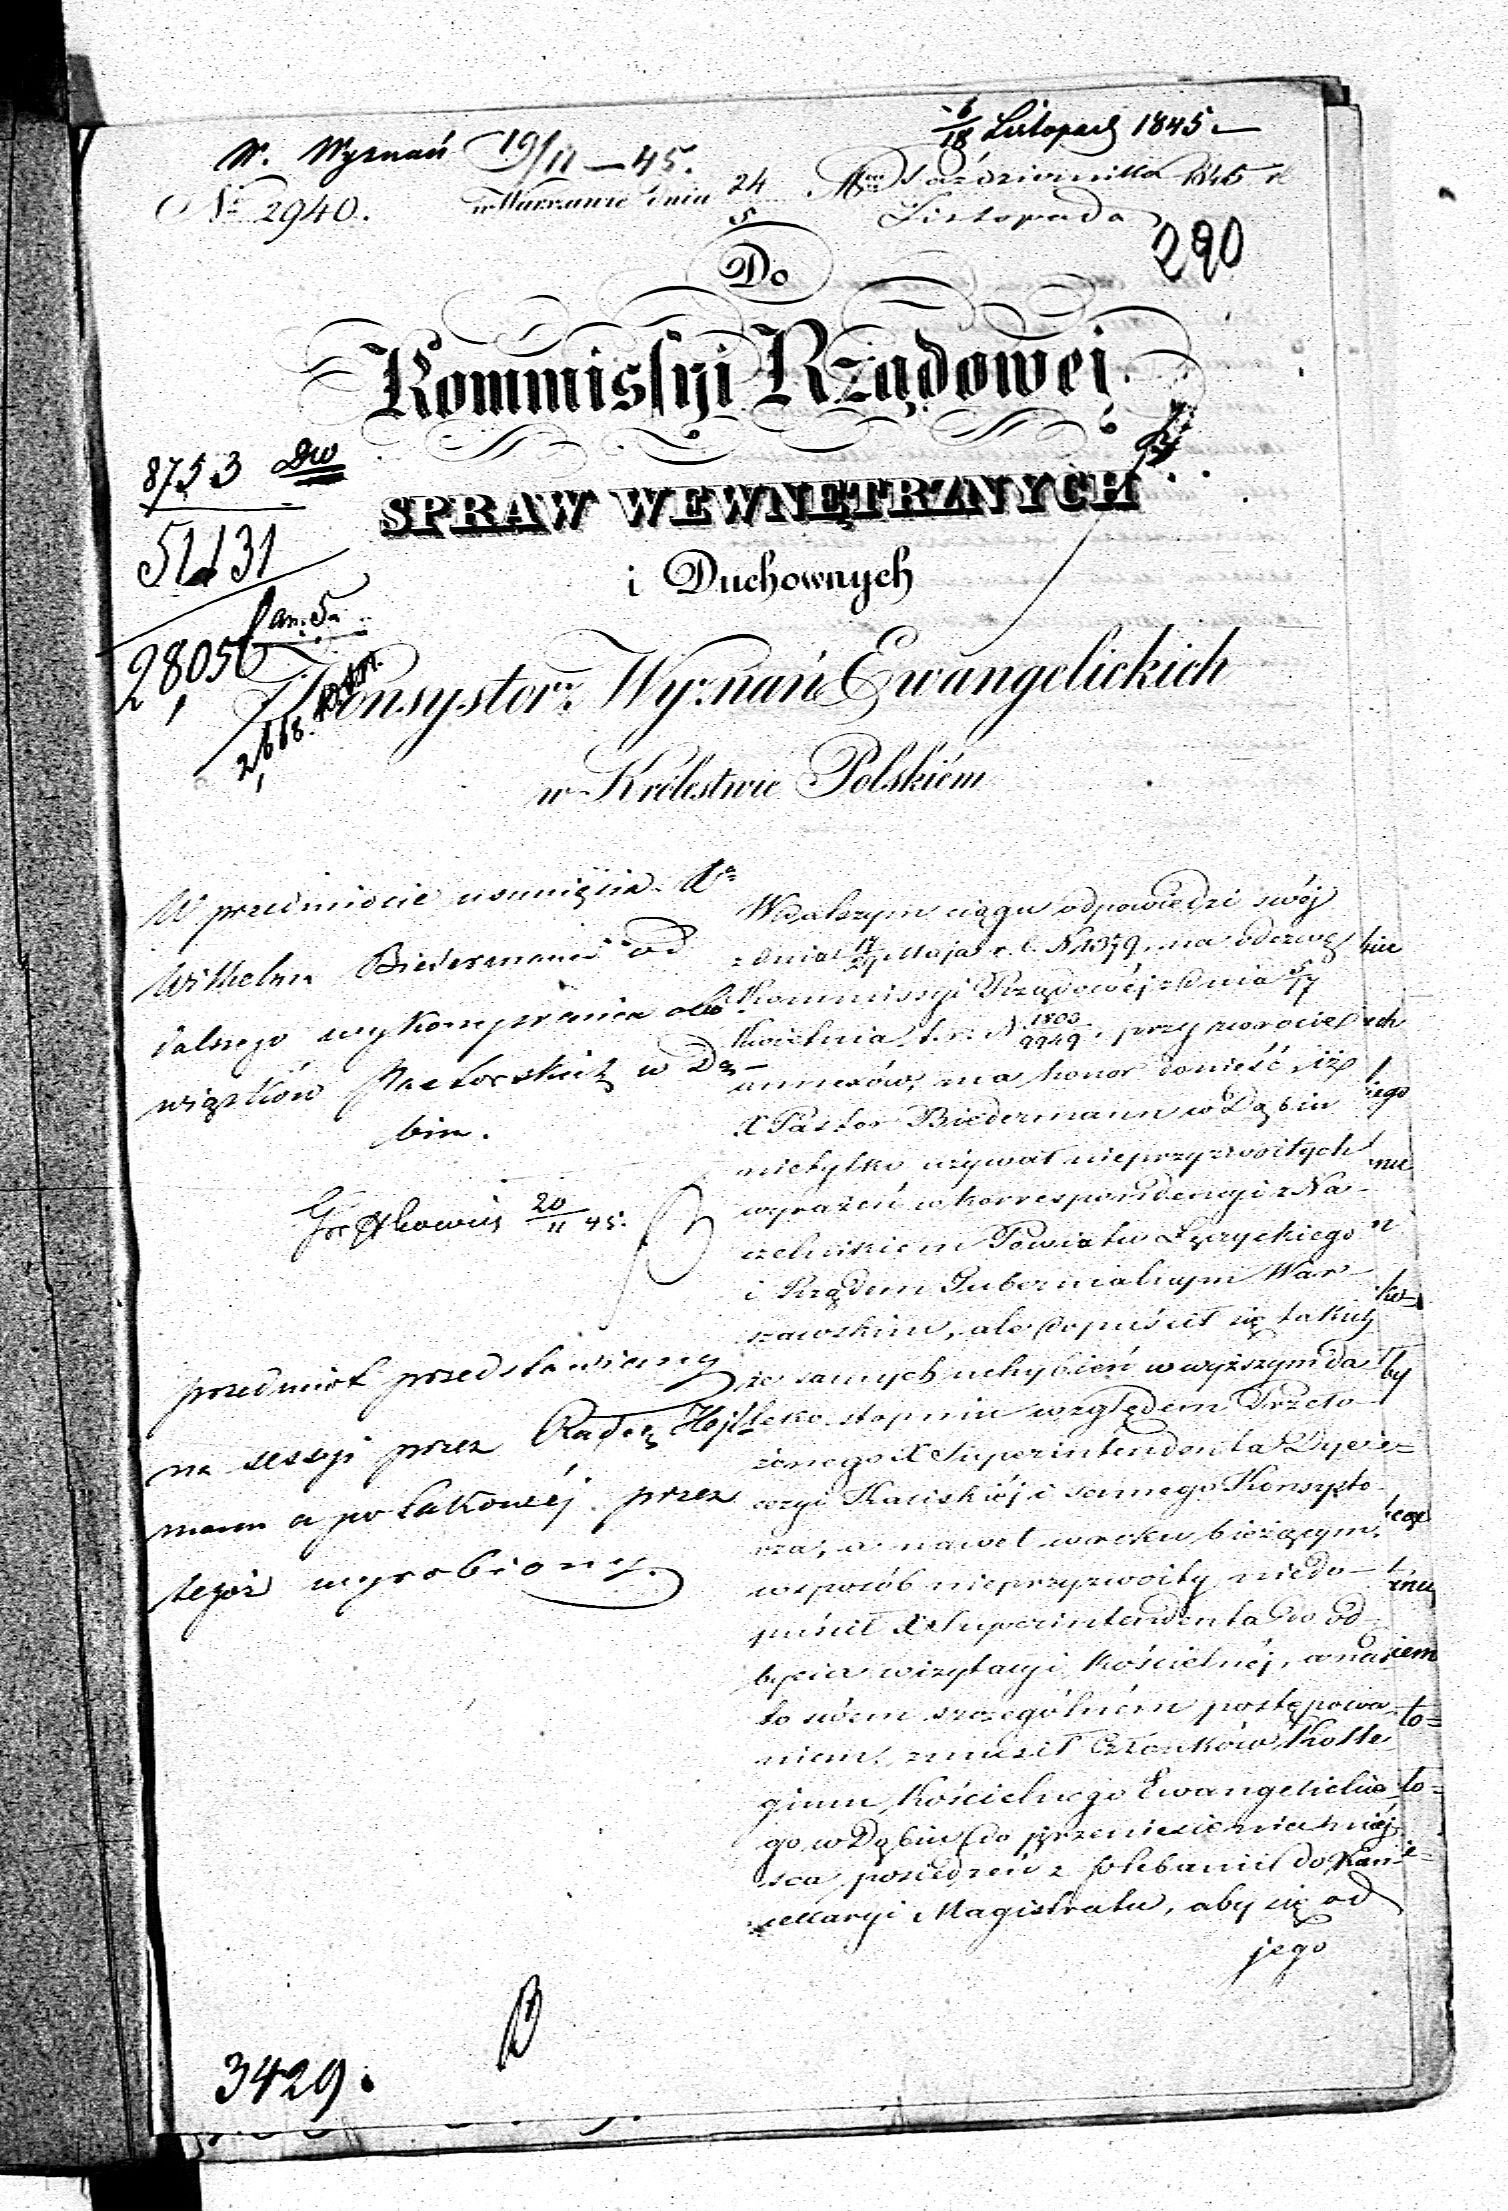 6/18 Listopad 1845.
W. Wyznań 19/11 — 45.
w Warszawie dnia 24/5 Mca Października 1845 r.
Listopada
Nr 2940.
290
Do
Kommissyi Rządowej
SPRAW WEWNĘTRZNYCH
i Duchownych
8753 Dw
51131
28056
2668.
Konsystorz Wyznań Ewangelickich
w Królestwie Polskiém
W przedmiocie usunięcia Xa
Wilhelma Biedermana od
dalszego wykonywania obo-
wiązków Pastorskich w Dą-
biu.
20/11 45.
przedmiot przedstawiony
na sessyi przez Radcę Hejl-
mann a po takowéj przez
tegoż wyrobiony.
W dalszym ciągu odpowiedzi swéj
z dnia Maja r. b. N 1379, na odezwę
Kommissyi Rządowéj z dnia 5/17
Kwietnia t. r. N 1803/9949, przy zwrocie
annexów, ma honor donieść, iż
X Pastor Biedermann w Dąbiu
nietylko używał nieprzyzwoitych
wyrażeń w korrespondencyi z Na-
czelnikiem Powiatu Łęczyckiego
i Rządem Gubernialnym War-
szawskim, ale dopuścił się takich
że samych uchybień w wyższym da-
leko stopniu względem Przeło-
żonego X Superintendenta Dyece-
zyi Kaliskiéj i samego Konsysto-
rza, a nawet w roku bieżącym
w sposób nieprzyzwoity niedo-
puścił X Superintendenta do od-
bycia wizytacyi Kościelnéj, a na-
to swém szczególném postępowa-
niem zmusił Członków Kolle-
gium Kościelnego Ewangelickie-
go w Dąbiu do przeniesienia miej-
sca posiedzeń z plebanii do Kan-
cellaryi Magistratu, aby się od
jego
3429.